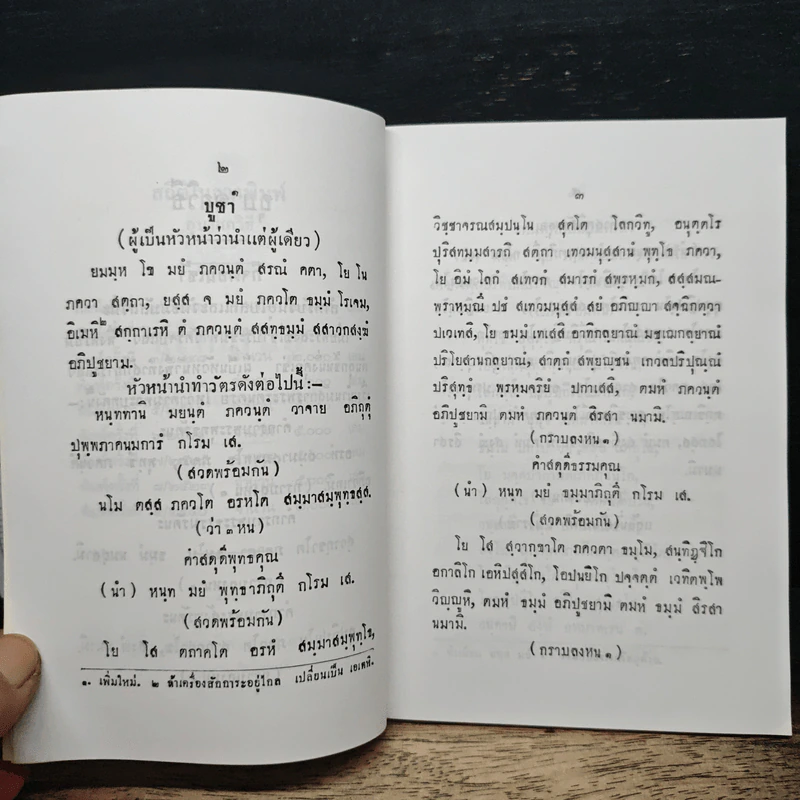 ๒
บูชา๑
(ผู้เป็นหัวหน้าว่านำแต่ผู้เดียว)
ยมมฺห โข มยํ ภควนฺตํ สรณํ คตา, โย โน
ภควา สตฺถา, ยสฺส จ มยํ ภควโต ธมฺมํ โรเจม,
อิเมหิ๒ สกฺกาเรหิ ตํ ภควนฺตํ สสทฺธมฺมํ สสาวกสงฺฆํ
อภิปูชยาม.
หัวหน้านำทำวัตรดังต่อไปนี้:—
หนฺททานิ มยนฺตํ ภควนฺตํ วาจาย อภิถุตุํ
ปุพฺพภาคนมการํ กโรม เส.
(สวดพร้อมกัน)
นโม ตสฺส ภควโต อรหโต สมฺมาสมฺพุทฺธสฺส.
(ว่า ๓ หน)
คำสดุดีพุทธคุณ
(นำ) หนฺท มยํ พุทฺธาภิถุตึ กโรม เส.
(สวดพร้อมกัน)
โย โส ตถาคโต อรหํ สมฺมาสมฺพุทฺโธ,
๑. เพิ่มใหม่. ๒ ถ้าเครื่องสักการะอยู่ไกล เปลี่ยนเป็น เอเตหิ.
๓
วิชฺชาจรณสมฺปนฺโน สุคโต โลกวิทู, อนุตฺตโร
ปุริสทมฺมสารถิ สตฺถา เทวมนุสฺสานํ พุทฺโธ ภควา,
โย อิมํ โลกํ สเทวกํ สมารกํ สพฺรหฺมกํ, สสฺสมณ-
พฺราหฺมณึ ปชํ สเทวมนุสฺสํ สยํ อภิญฺญา สจฺฉิกตฺวา
ปเวเทสิ, โย ธมฺมํ เทเสสิ อาทิกลฺยาณํ มชฺเฌกลฺยาณํ
ปริโยสานกลฺยาณํ, สาตฺถํ สพฺยญฺชนํ เกวลปริปุณฺณํ
ปริสุทฺธํ พฺรหฺมจริยํ ปกาเสสิ, ตมหํ ภควนฺตํ
อภิปูชยามิ ตมหํ ภควนฺตํ สิรสา นมามิ.
(กราบลงหน ๑)
คำสดุดีธรรมคุณ
(นำ) หนฺท มยํ ธมฺมาภิถุตึ กโรม เส.
(สวดพร้อมกัน)
โย โส สฺวากฺขาโต ภควตา ธมฺโม, สนฺทิฏฺฐิโก
อกาลิโก เอหิปสฺสิโก, โอปนยิโก ปจฺจตฺตํ เวทิตพฺโพ
วิญฺญูหิ, ตมหํ ธมฺมํ อภิปูชยามิ ตมหํ ธมฺมํ สิรสา
นมามิ.
(กราบลงหน ๑)